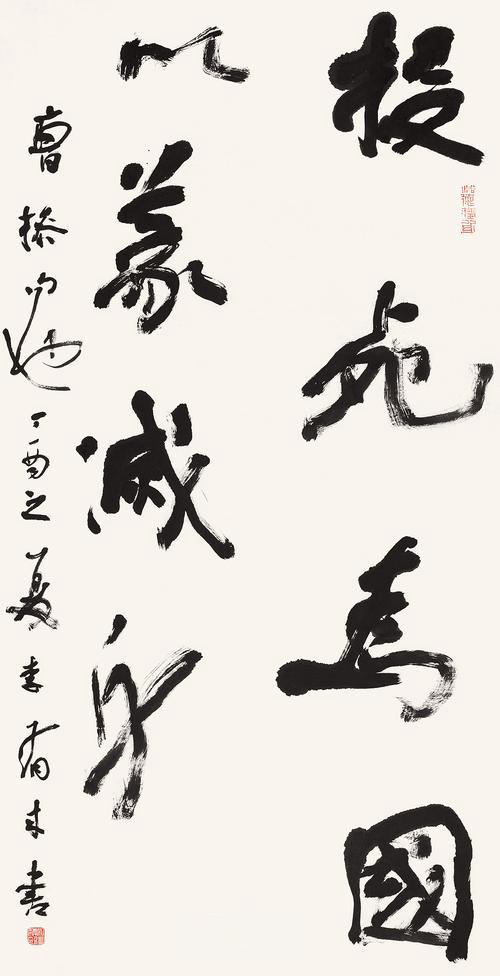 投死為國
以義滅身
曹操句也丁酉之夏李有来書